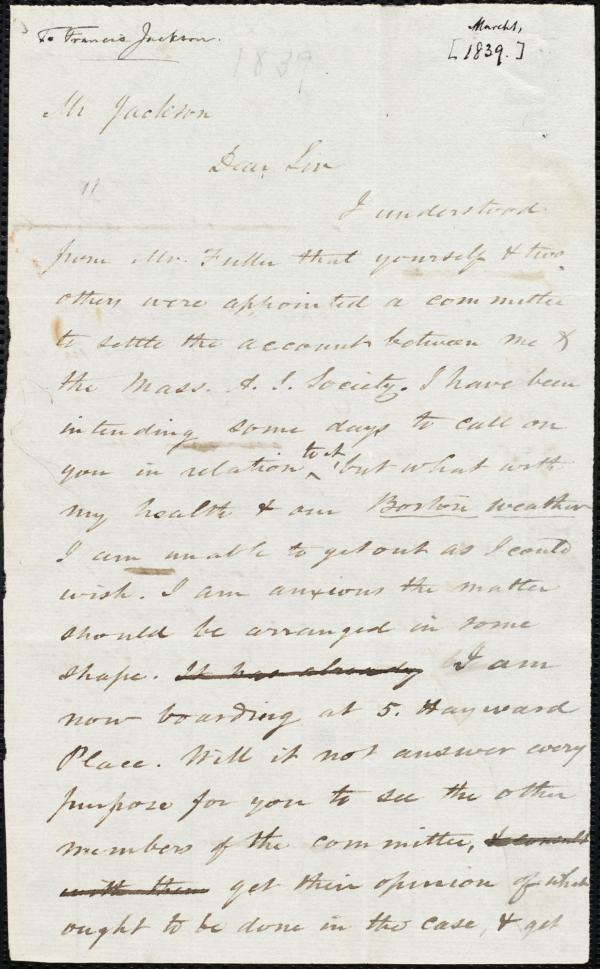 To Francis Jackson.
March 1,
[1839.]
1839
Mr Jackson
Dear Sir
11
I understood
from Mr. Fuller that yourself & two
others were appointed a committee
to settle the account between me &
the Mass. A. S. Society. I have been
intending some days to call on
you in relation to it, but what with
my health & our Boston weather
I am unable to get out as I could
wish. I am anxious the matter
should be arranged in some
shape. It has already I am
now boarding at 5. Hayward
Place. Will it not answer every
purpose for you to see the other
members of the committee, & consult
with them get their opinion of what
ought to be done in the case, & get